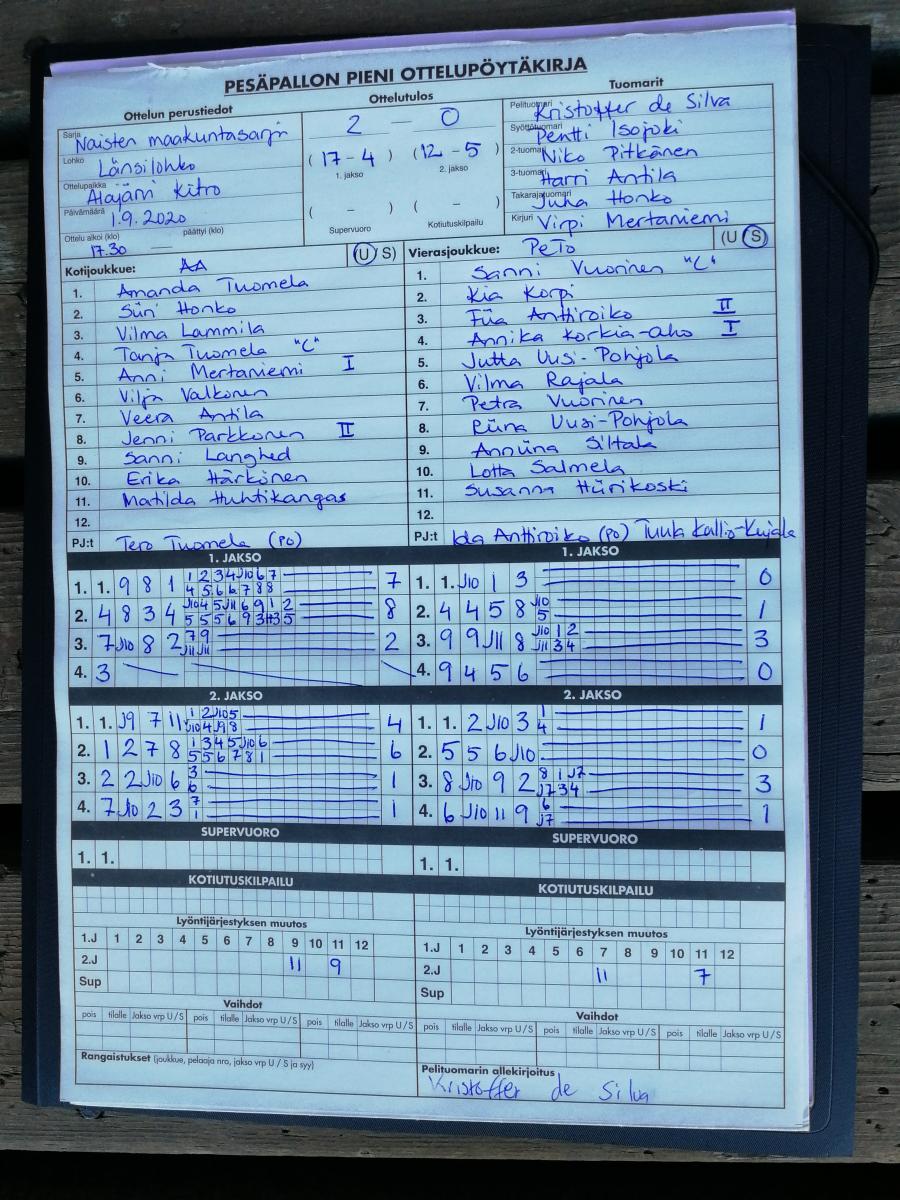 PESÄPALLON PIENI OTTELUPÖYTÄKIRJA
Ottelun perustiedot
Sarja Naisten maakuntasarja
Lohko Länsilohko
Ottelupaikka Alajärvi Kitro
Päivämäärä 1.9.2020
Ottelu alkoi (klo) päättyi (klo)
17.30 —
Ottelutulos
2 — 0
(17-4) (12-5)
1. jakso 2. jakso
( - ) ( - )
Supervuoro Kotiutuskilpailu
Tuomarit
Pelituomari Kristoffer de Silva
Syöttötuomari Pentti Isojoki
2-tuomari Niko Pitkänen
3-tuomari Harri Antila
Takarajatuomari Juha Honko
Kirjuri Virpi Mertaniemi
Kotijoukkue: AA (U S)
1. Amanda Tuomela
2. Siiri Honko
3. Vilma Lammila
4. Tanja Tuomela "C"
5. Anni Mertaniemi I
6. Vilja Valkonen
7. Veera Antila
8. Jenni Parkkonen II
9. Sanni Langhed
10. Erika Härkönen
11. Matilda Huhtikangas
12.
PJ:t Tero Tuomela (PO)
Vierasjoukkue: PeTo (U S)
1. Sanni Vuorinen "C"
2. Kia Korpi
3. Fiia Anttiroiko II
4. Annika Korkia-aho I
5. Jutta Uusi-Pohjola
6. Vilma Rajala
7. Petra Vuorinen
8. Riina Uusi-Pohjola
9. Anniina Siltala
10. Lotta Salmela
11. Susanna Hiirikoski
12.
PJ:t Ida Anttiroiko (PO) Tuula Kallio-Kujala
1. JAKSO
1. 1. 9 8 1 1 2 3 4 J10 6 7 7
4 5 6 6 7 8 8
2. 4 8 3 4 J10 4 5 J11 6 9 1 2 8
5 5 5 6 9 3 5
3. 7 J10 8 2 7 9 2
J11 J11
4. 3
1. JAKSO
1. 1. J10 1 3 0
2. 4 4 5 8 J10 1
5
3. 9 9 J11 8 J10 1 2 3
J11 3 4
4. 9 4 5 6 0
2. JAKSO
1. 1. J9 7 11 1 2 J10 5 4
J10 4 J9 8
2. 1 2 7 8 1 3 4 5 J10 6 6
5 5 6 7 8 1
3. 2 2 J10 6 3 1
6
4. 7 J10 2 3 7 1
1
2. JAKSO
1. 1. 2 J10 3 1 1
4
2. 5 5 6 J10 0
3. 8 J10 9 2 8 1 J7 3
J7 3 4
4. 6 J10 11 9 6 1
J7
SUPERVUORO
1. 1.
SUPERVUORO
1. 1.
KOTIUTUSKILPAILU
KOTIUTUSKILPAILU
Lyöntijärjestyksen muutos
1.J 1 2 3 4 5 6 7 8 9 10 11 12
2.J 11 9
Sup
Lyöntijärjestyksen muutos
1.J 1 2 3 4 5 6 7 8 9 10 11 12
2.J 11 7
Sup
Vaihdot
pois tilalle Jakso vrp U/S pois tilalle Jakso vrp U/S pois tilalle Jakso vrp U/S
Vaihdot
pois tilalle Jakso vrp U/S pois tilalle Jakso vrp U/S pois tilalle Jakso vrp U/S
Rangaistukset (joukkue, pelaaja nro, jakso vrp U / S ja syy)
Pelituomarin allekirjoitus
Kristoffer de Silva